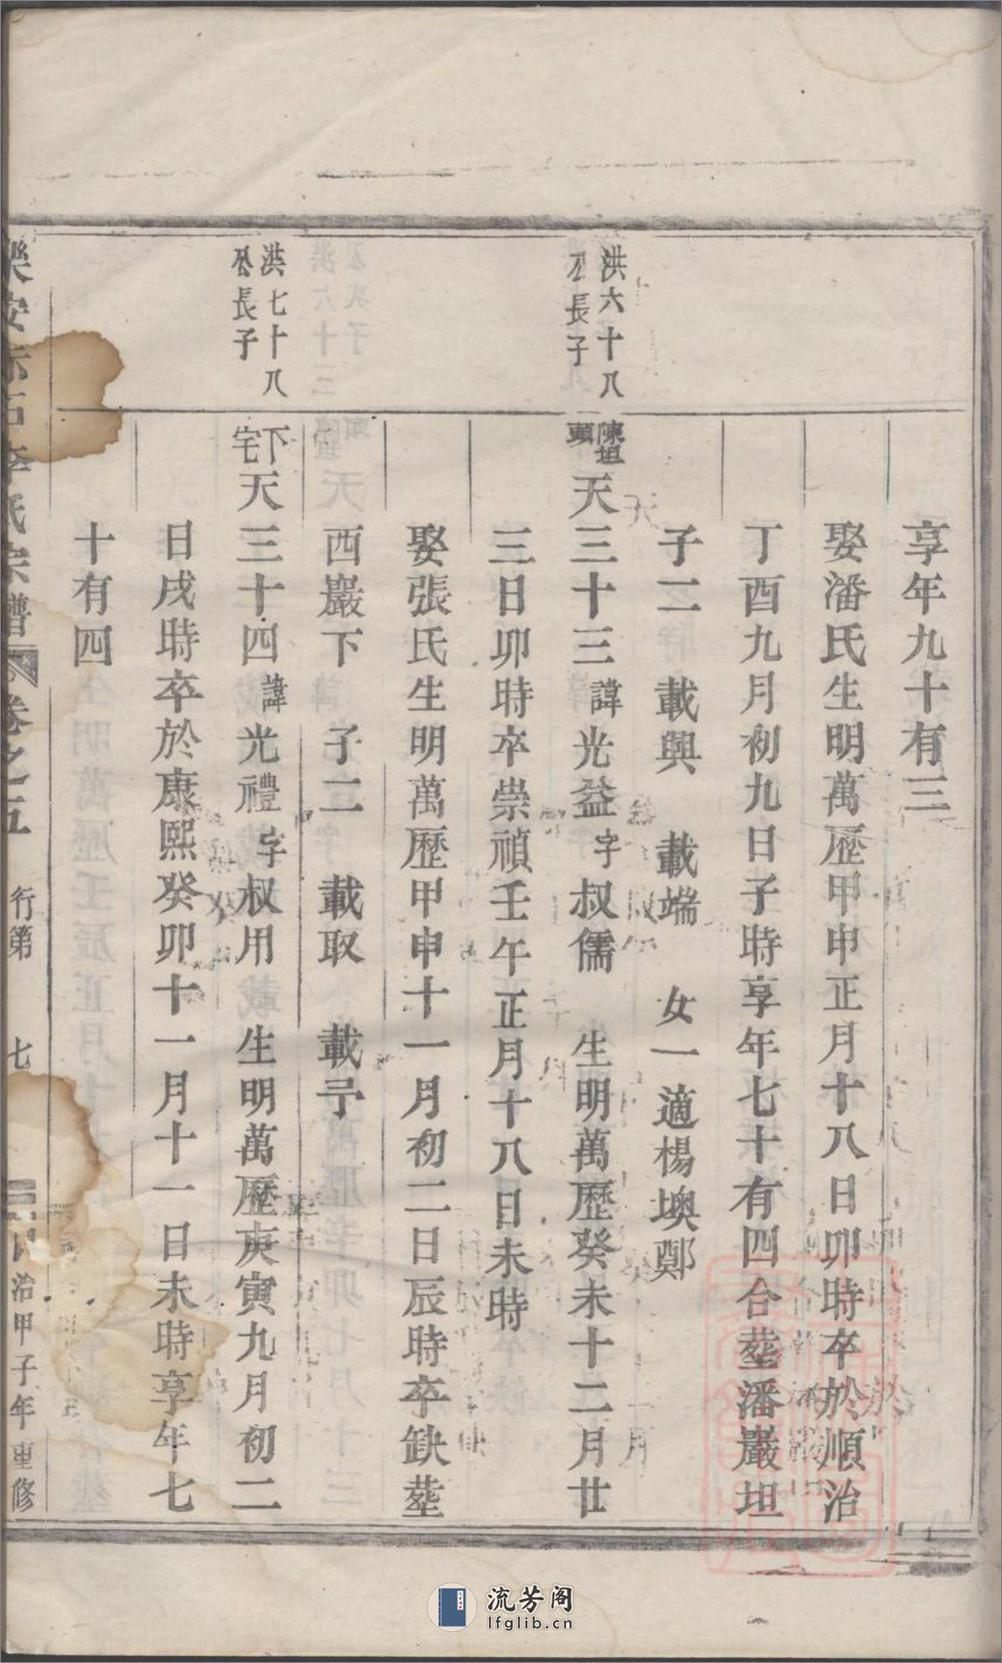 享年九十有三
娶潘氏生明萬歷甲申正月十八日卯時卒於順治
丁酉九月初九日子時享年七十有四合塟潘巖坦
子二 載興 載端 女一適楊墺鄭
洪六十八
公長子
陳坦
頭
天三十三諱光益字叔儒 生明萬歷癸未十二月廿
三日卯時卒崇禎壬午正月十八日未時
娶張氏生明萬歷甲申十一月初二日辰時卒缺塟
西巖下 子二 載取 載予
洪七十八
公長子
下
宅
天三十四諱光禮字叔用 生明萬歷庚寅九月初二
日戌時卒於康熙癸卯十一月十一日未時享年七
十有四
樂安 石李氏宗譜 卷之五 行第 七 治甲子年重修
流芳阁
lfglib.cn